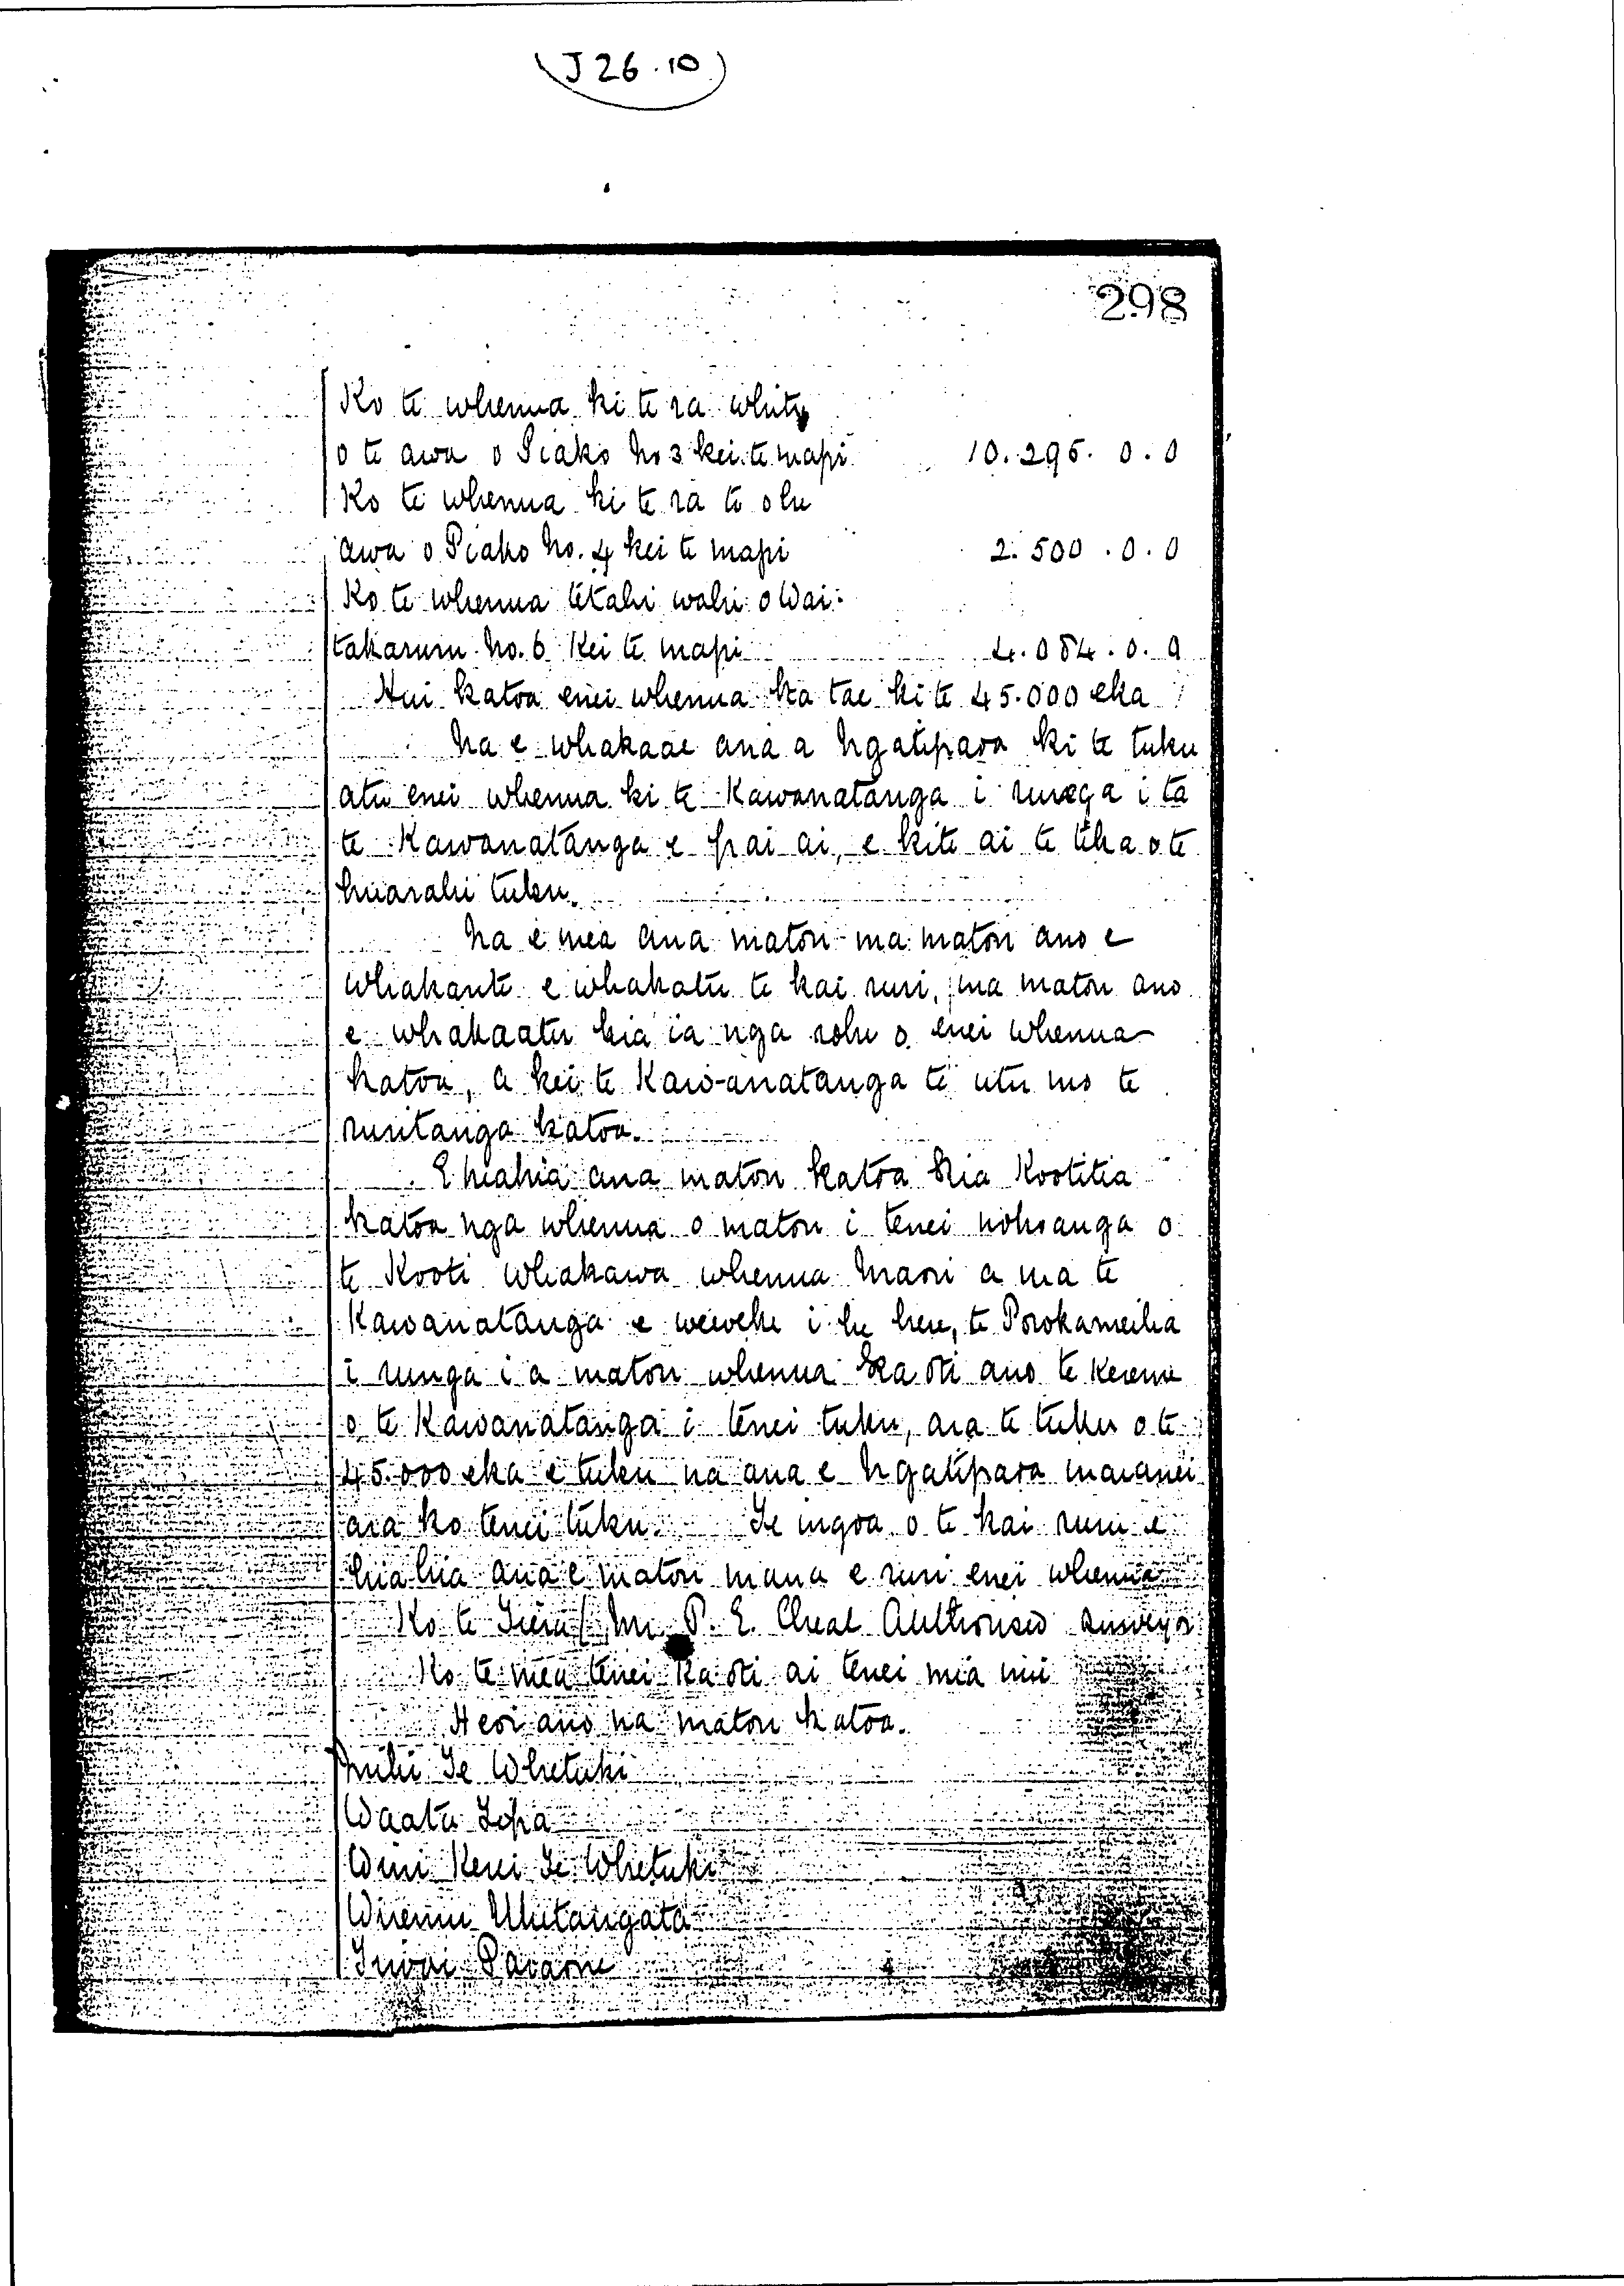 J 26.10
298
Ko te whenua ki te ra whiti
o te awa o Piako No 3 kei te mapi 10.296.0.0
Ko te whenua ki te ra to o te
awa o Piako No. 4 kei te mapi 2.500.0.0
Ko te whenua tetahi wahi o Wai-
takaruru No. 6 Kei te mapi 4.084.0.0
Hui katoa enei whenua ka tae ki te 45.000 eka
Na e whakaae ana a Ngatipaoa ki te tuku
atu enei whenua ki te Kawanatanga i runga i ta
te Kawanatanga e pai ai, e kite ai te tika o te
huarahi tuku.
Na e mea ana matou ma matou ano e
whakarite e whakatu te kai ruri, ma matou ano
e whakaatu kia ia nga rohe o enei whenua
katoa, a kei te Kaw-anatanga te utu mo te
ruritanga katoa.
E hiahia ana matou katoa kia Kootitia
katoa nga whenua o matou i tenei nohoanga o
te Kooti Whakawa whenua Maori a ma te
Kawanatanga e wewehe i te here, te Porokameiha
i runga i a matou whenua ka oti ano te Kereme
o te Kawanatanga i tenei tuku, ara te tuku o te
45.000 eka e tuku na ana e Ngatipaoa inaianei
ara ko tenei tuku. Te ingoa o te kai ruri e
hiahia ana e matou mana e ruri enei whenua
Ko te Tiera (Mr P. E. Cheal Authorised Surveyor
Ko te mea tenei ka oti ai tenei mea nui
Heoi ano na matou katoa.
Mihi Te Whetuki
Waata Topa
Wini Kerei Te Whetuki
Wiremu Uhitangata
Paraone